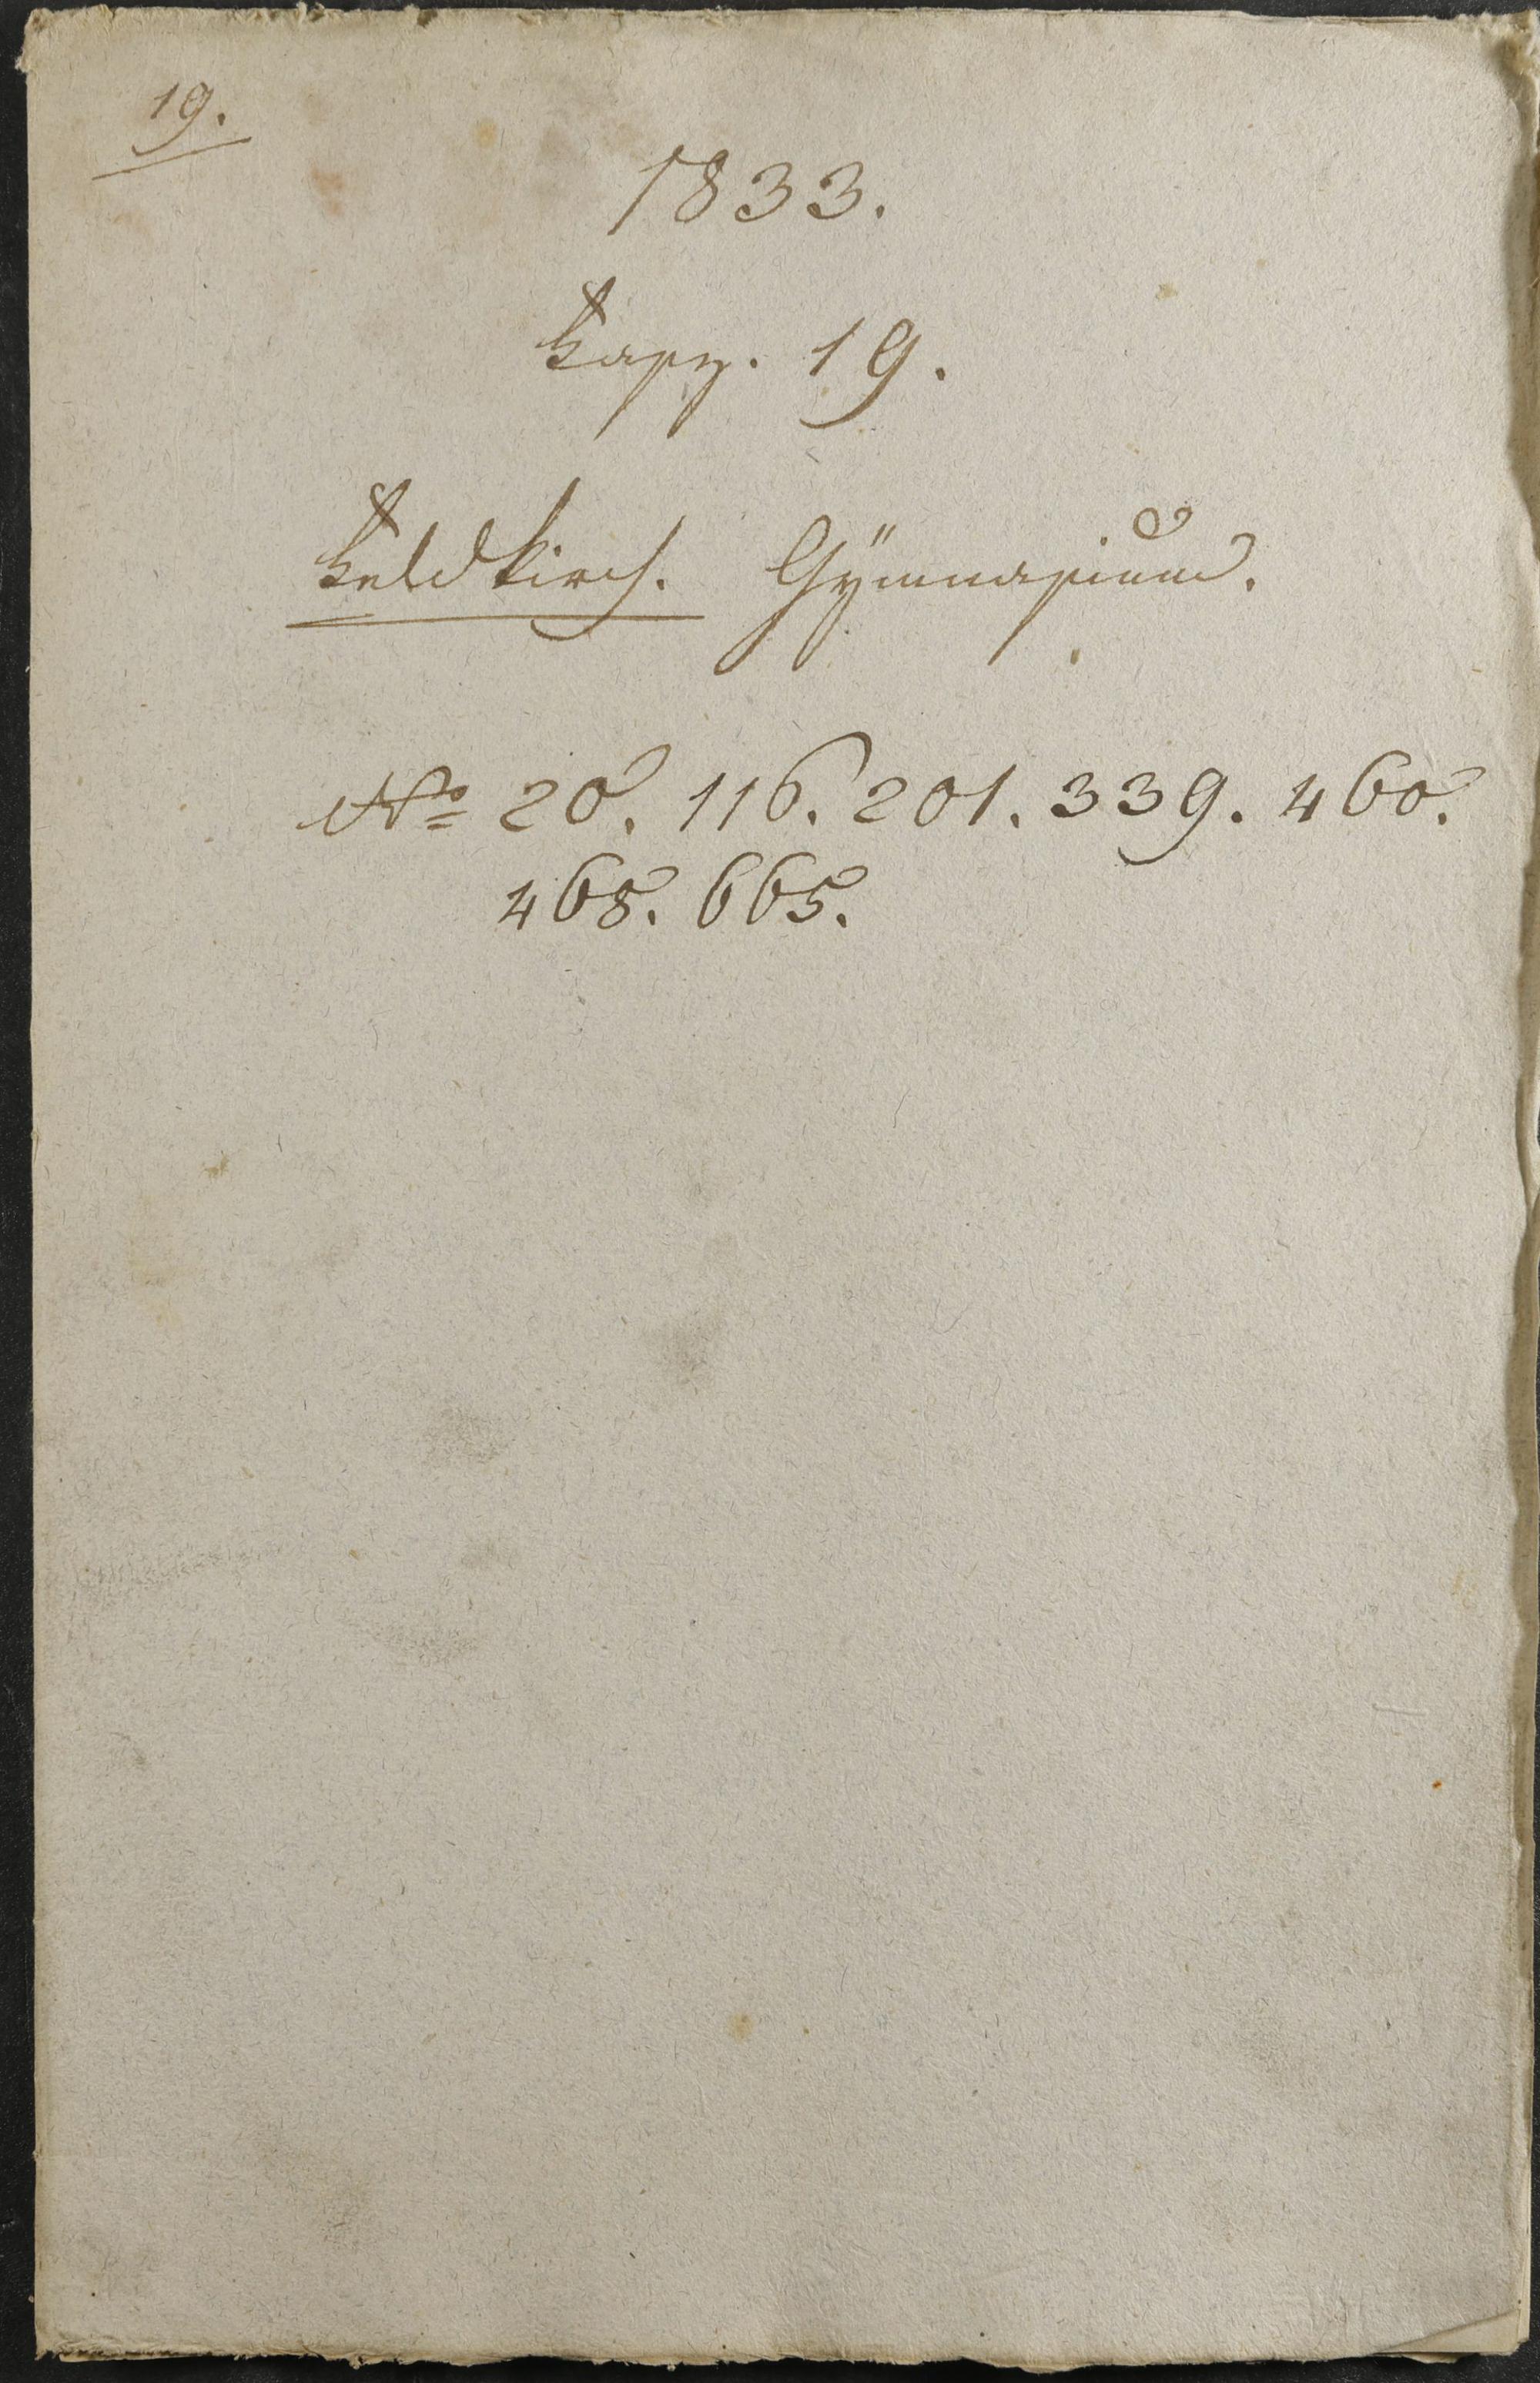 19.
1833.
Fasz. 19.
Feldkirch. Gÿmnasium.
No 20. 116. 201. 339. 460.
468. 665.